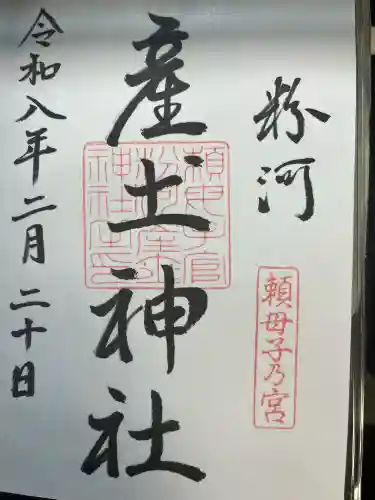 粉河
頼母子乃宮
産土神社
令和八年二月二十日